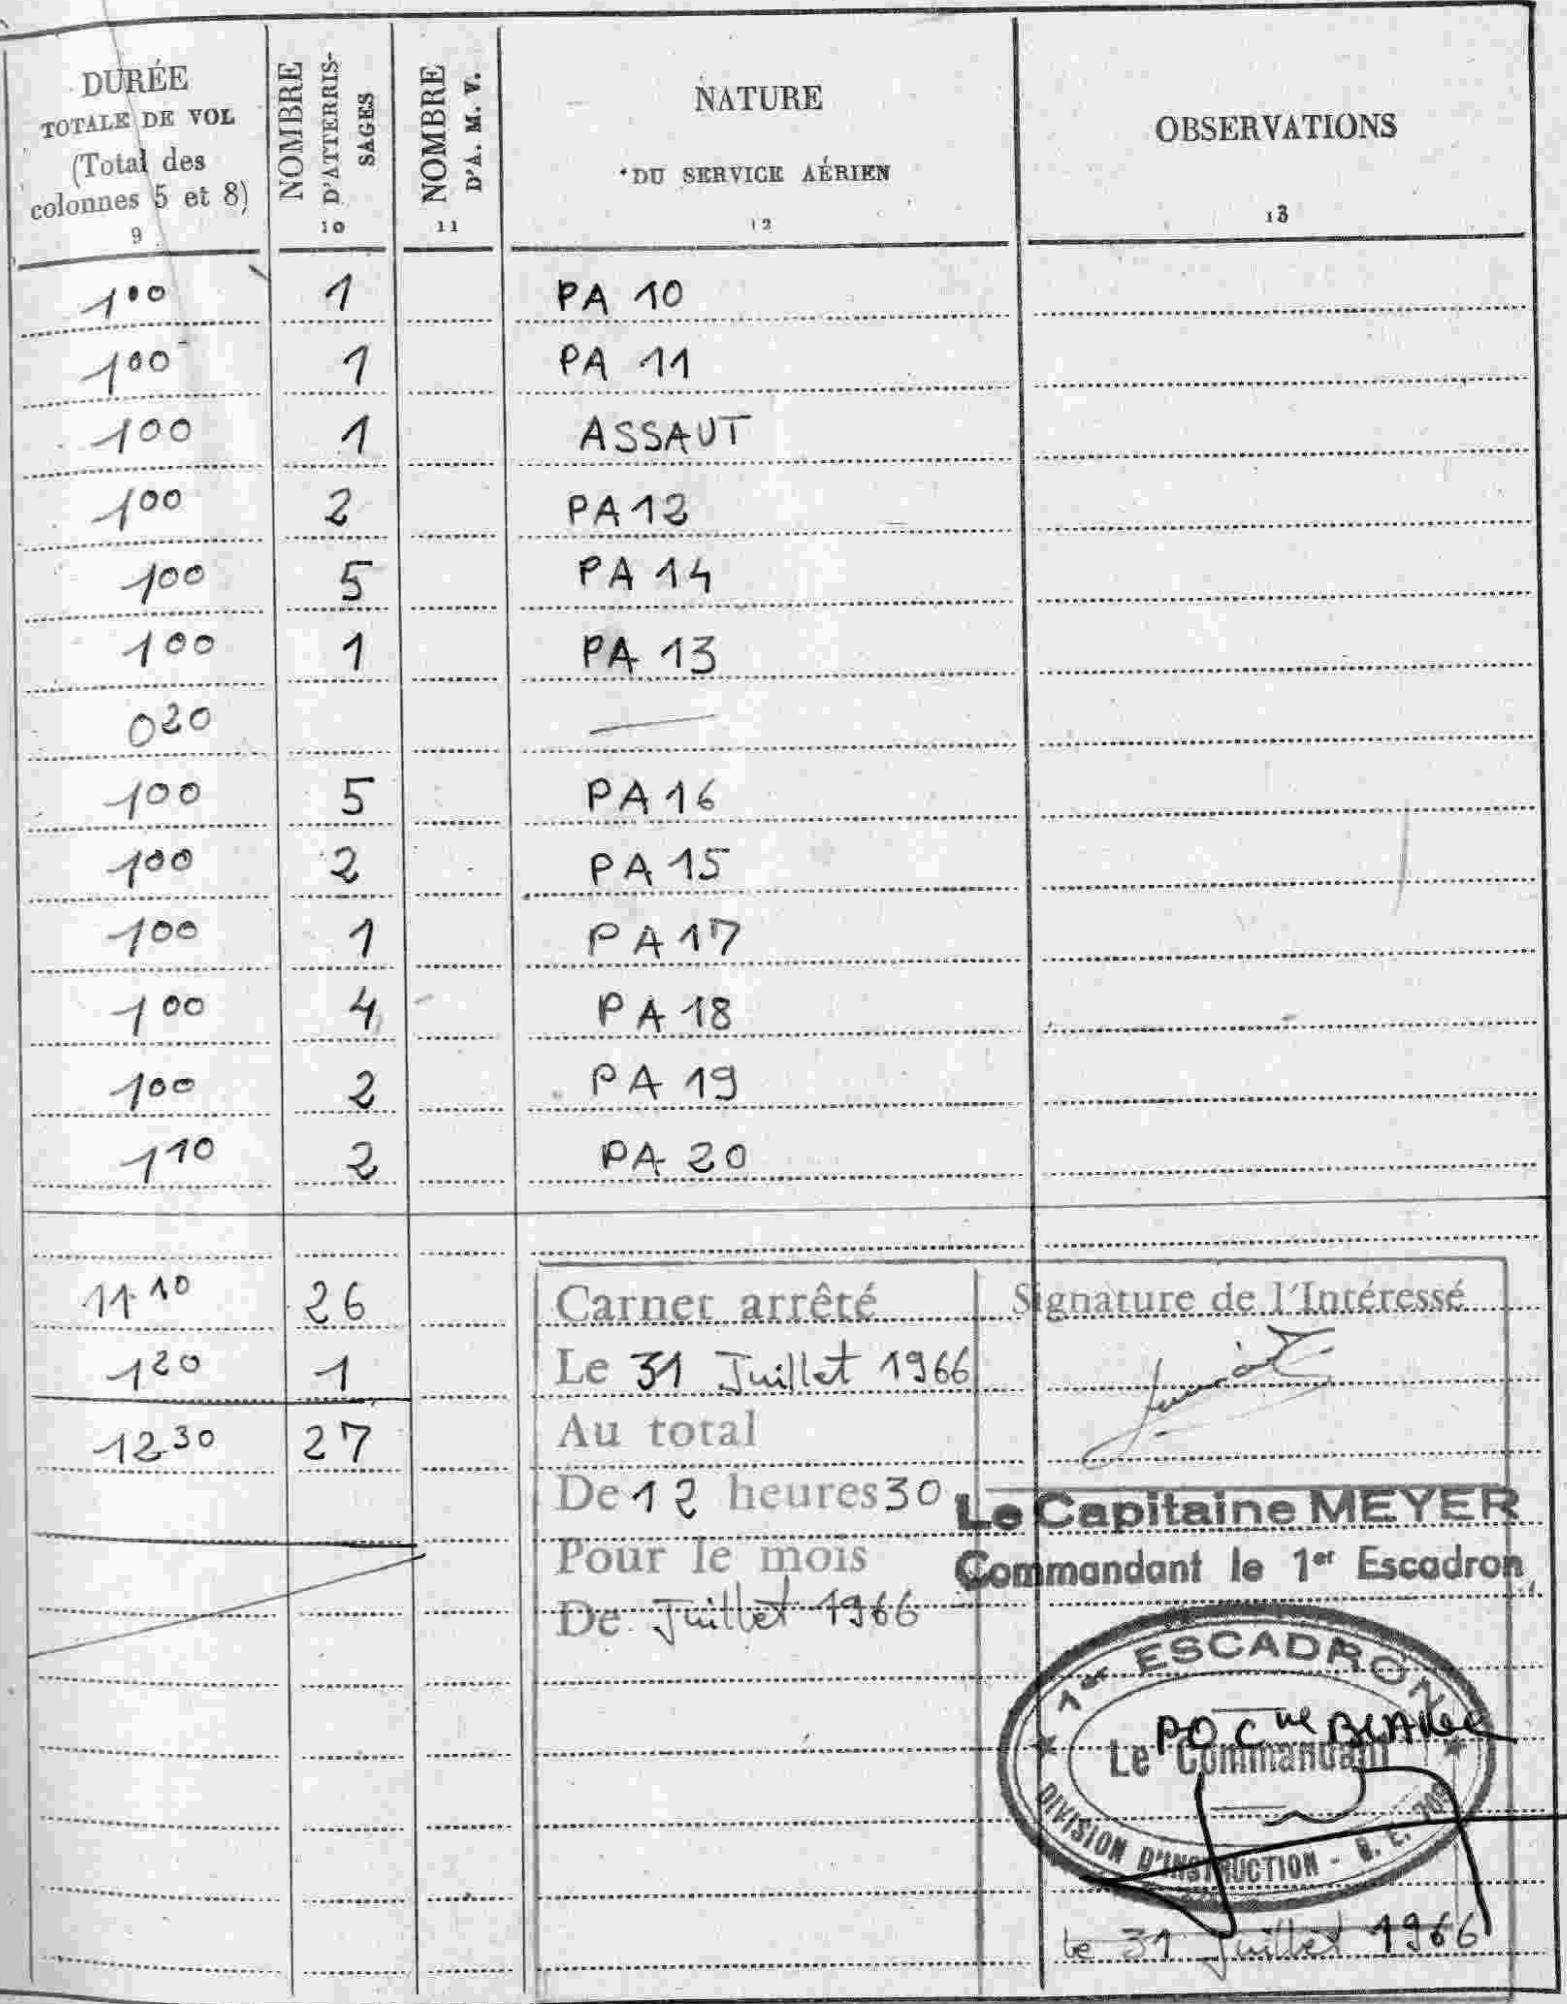 DURÉE
TOTALE DE VOL
(Total des
colonnes 5 et 8)
9
NOMBRE
D'ATTERRIS-
SAGES
10
NOMBRE
D'A. M. V.
11
NATURE
DU SERVICE AÉRIEN
12
OBSERVATIONS
13
1 00 1 PA 10
1 00 1 PA 11
1 00 1 ASSAUT
1 00 2 PA 12
1 00 5 PA 14
1 00 1 PA 13
0 20 —
1 00 5 PA 16
1 00 2 PA 15
1 00 1 PA 17
1 00 4 PA 18
1 00 2 PA 19
1 10 2 PA 20
11 10 26
1 20 1
12 30 27
Carnet arrêté
Le 31 Juillet 1966
Au total
De 12 heures 30
Pour le mois
De Juillet 1966
Signature de l'Intéressé
Le Capitaine MEYER
Commandant le 1er Escadron,
1er ESCADRON
PO Cne
Le Commandant
DIVISION D'INSTRUCTION - B. E. 709
le 31 Juillet 1966